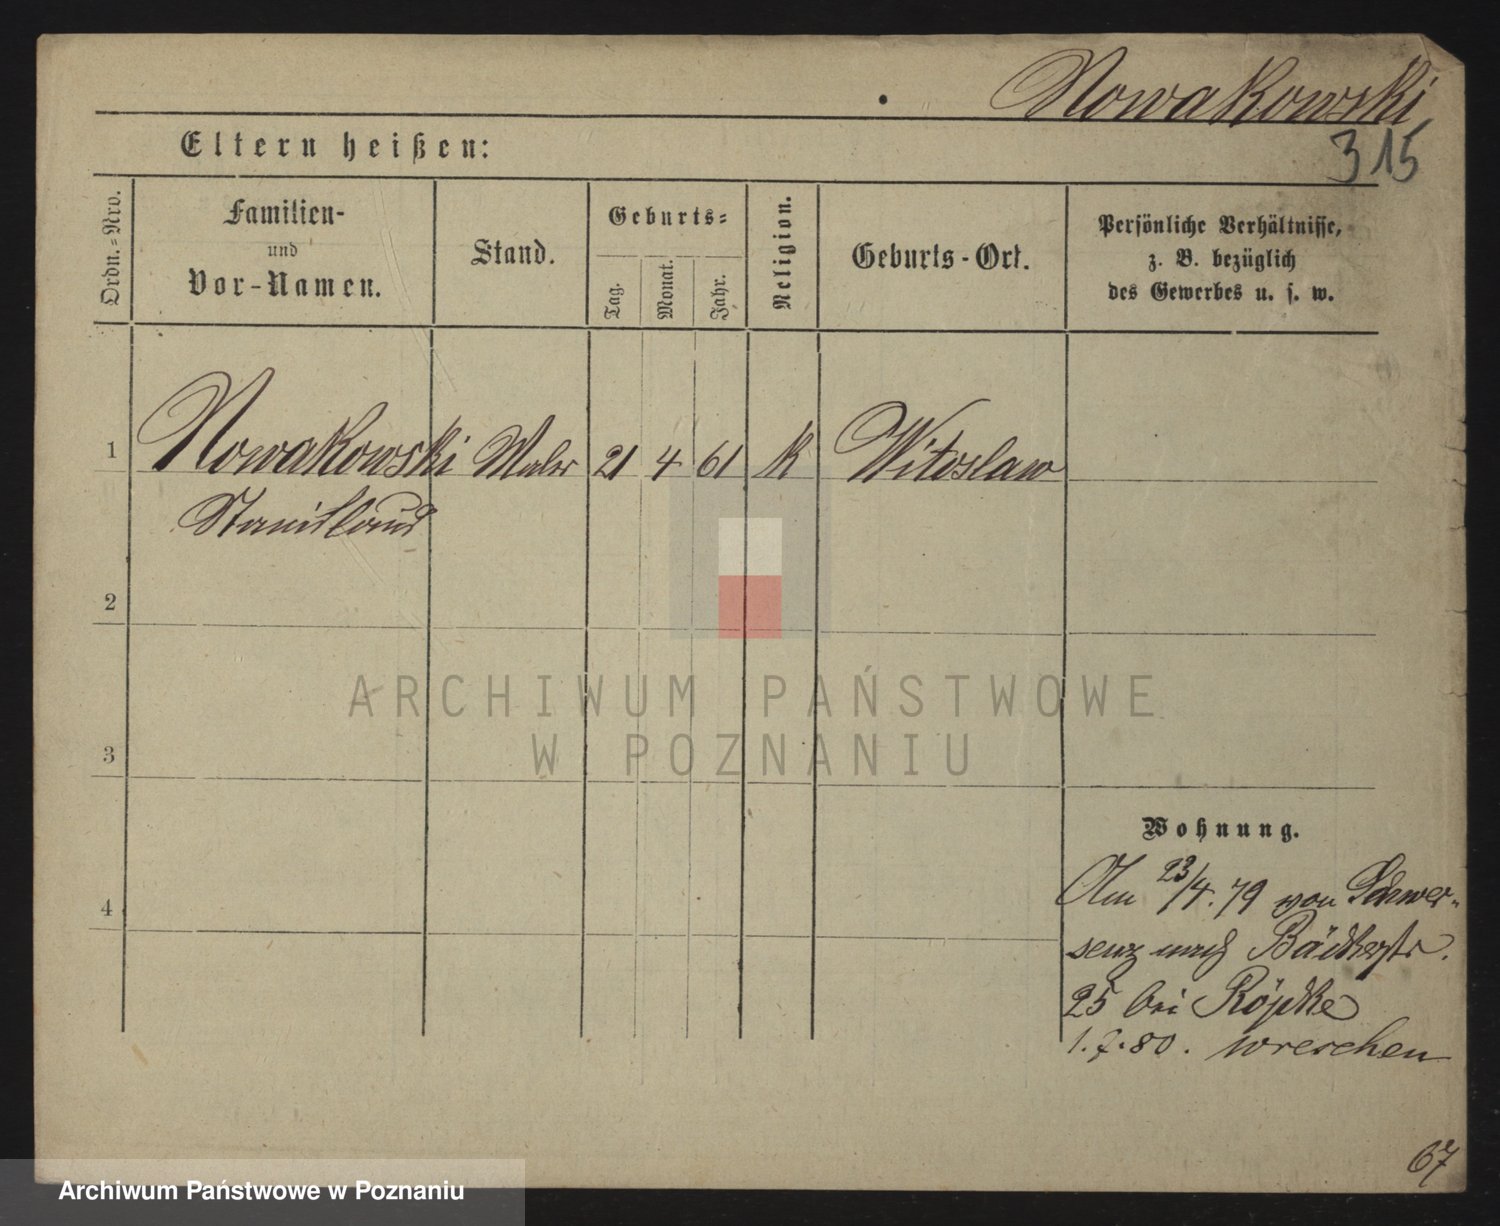 Nowakowski
315
Eltern heißen:
Ordn.-Nro.
Familien-
und
Vor-Namen.
Stand.
Geburts-
Tag.
Monat.
Jahr.
Religion.
Geburts-Ort.
Persönliche Verhältnisse,
z. B. bezüglich
des Gewerbes u. s. w.
1 Nowakowski Maler 21 4 61 K Witoslaw
Stanislaus
2
3
4
Wohnung.
Am 23/4. 79 von Schwer-
senz nach Bäckerstr.
25 bei Röpke
1. 7. 80. Wreschen
67
ARCHIWUM PAŃSTWOWE
W POZNANIU
Archiwum Państwowe w Poznaniu